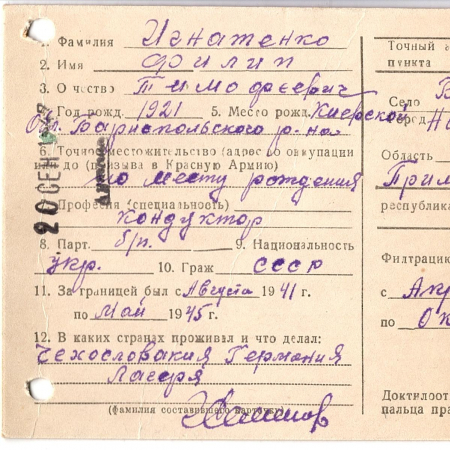 1. Фамилия Игнатенко
2. Имя Филип
3. Отчество Тимофеевич
4. Год рожд. 1921 5. Место рожд. Киевской
об. Бариспольского р-на
6. Точное местожительство (адрес до оккупации
или до призыва в Красную Армию)
по месту рождения
7. Професия (специальность)
кондуктор
8. Парт. б/п. 9. Национальность
укр. 10. Граж СССР
11. За границей был с Августа 1941 г.
по Май 1945 г.
12. В каких странах проживал и что делал:
Чехословакия Германия
Лагеря
(фамилия составившего карточку)
20 СЕН
Точный
пункта
Село
Город
Область
Прим
республика
Фильтрацио
с
по
Доктилоот
пальца пра